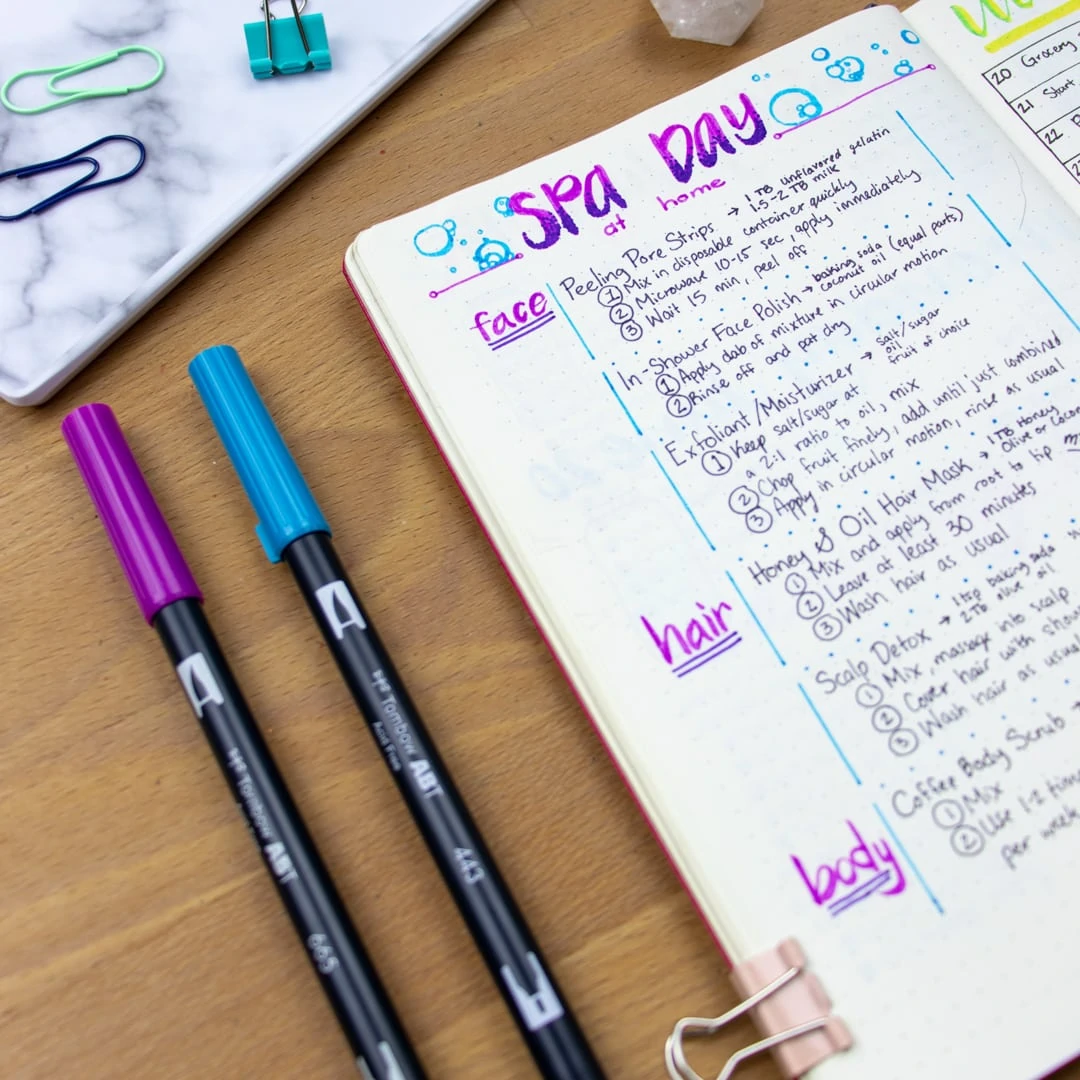 SPA DAY
at home
face
Peeling Pore Strips → 1 TB unflavored gelatin
1.5-2 TB milk
① Mix in disposable container quickly
② Microwave 10-15 sec, apply immediately
③ Wait 15 min, peel off
In-Shower Face Polish → baking soda (equal parts)
coconut oil
① Apply dab of mixture in circular motion
② Rinse off and pat dry
Exfoliant/Moisturizer → salt/sugar
oil
fruit of choice
① Keep salt/sugar at
a 2:1 ratio to oil, mix
② Chop fruit finely, add until just combined
③ Apply in circular motion, rinse as usual
hair
Honey & Oil Hair Mask → 1 TB Honey
Olive or Cocon
① Mix and apply from root to tip
② Leave at least 30 minutes
③ Wash hair as usual
Scalp Detox → 1 tsp baking soda
2 TB olive oil
① Mix, massage into scalp
② Cover hair with show
③ Wash hair as usual
body
Coffee Body Scrub →
① Mix
② Use 1-2 time
per week
20 Grocery
21 Start
22
Tombow ABT
665
Tombow ABT
Acid Free
443